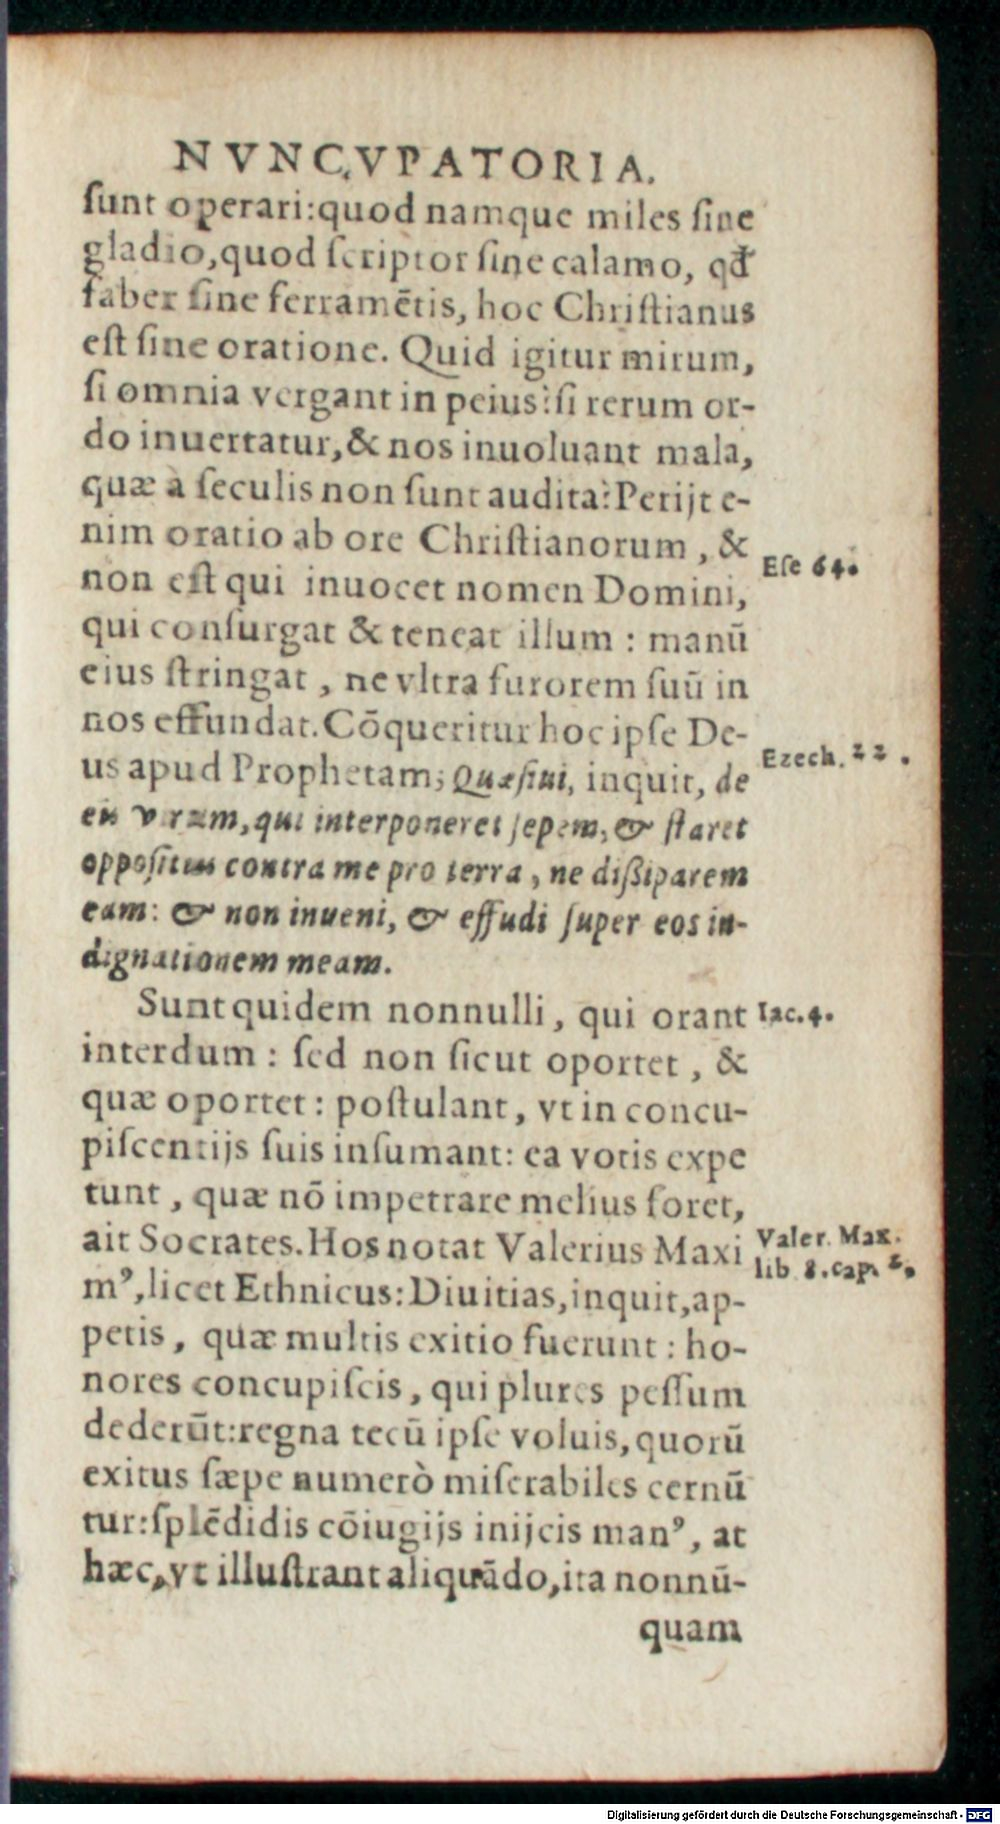 NVNCVPATORIA.
ſunt operari:quod namque miles ſine
gladio,quod ſcriptor ſine calamo, qđ
faber ſine ferramētis, hoc Chriſtianus
eſt ſine oratione. Quid igitur mirum,
ſi omnia vergant in peius? ſi rerum or-
do inuertatur, & nos inuoluant mala,
quæ à ſeculis non ſunt audita? Perijt e-
nim oratio ab ore Chriſtianorum, &
Eſe 64.
non eſt qui inuocet nomen Domini,
qui conſurgat & teneat illum : manū
eius ſtringat, ne vltra furorem ſuū in
nos effundat. Cōqueritur hoc ipſe De-
Ezech. 22.
us apud Prophetam; Quæſiui, inquit, de
eis virum, qui interponeret ſepem, & ſtaret
oppoſitus contra me pro terra, ne dißiparem
eam: & non inueni, & effudi ſuper eos in-
dignationem meam.
Sunt quidem nonnulli, qui orant
Iac. 4.
interdum : ſed non ſicut oportet, &
quæ oportet : poſtulant, vt in concu-
piſcentijs ſuis inſumant: ea votis expe
tunt, quæ nō impetrare melius foret,
ait Socrates. Hos notat Valerius Maxi
Valer. Max.
lib 8. cap. 2.
mꝰ, licet Ethnicus: Diuitias, inquit, ap-
petis, quæ multis exitio fuerunt : ho-
nores concupiſcis, qui plures peſſum
dederūt: regna tecū ipſe voluis, quorū
exitus ſæpe numerò miſerabiles cernū
tur: ſplēdidis cōiugijs inijcis manꝰ, at
hæc, vt illuſtrant aliquādo, ita nonnū-
quam
Digitalisierung gefördert durch die Deutsche Forschungsgemeinschaft - DFG